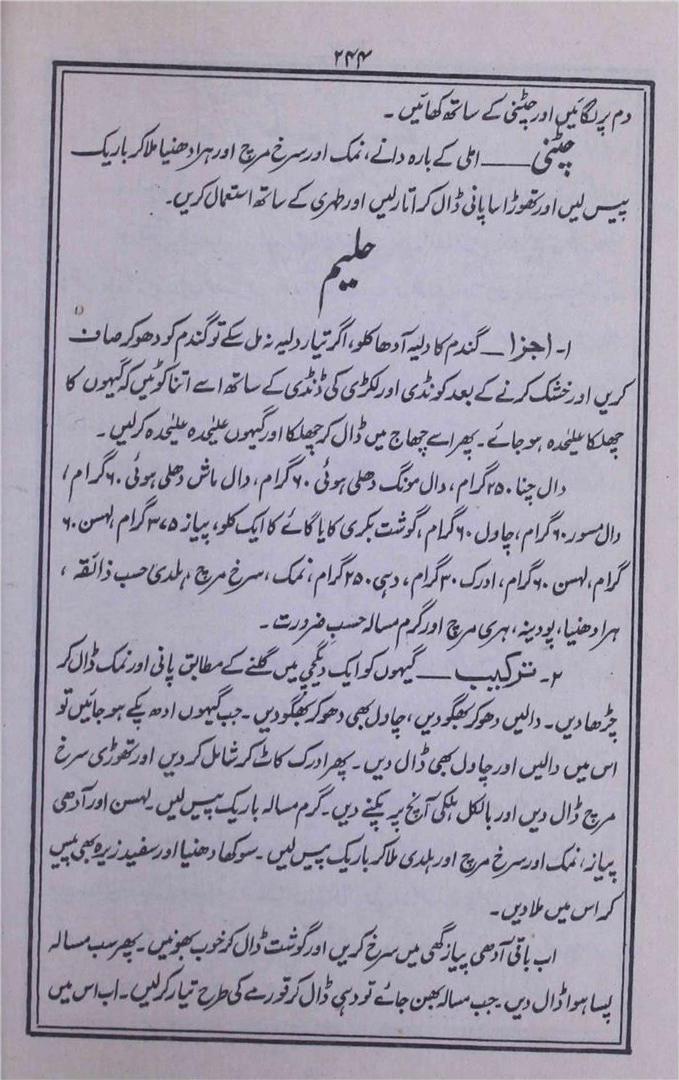 ۲۴۴
دم پر لگائیں اور چٹنی کے ساتھ کھائیں ۔
چٹنی ــــــ املی کے بارہ دانے، نمک اور سرخ مرچ اور ہرا دھنیا ملا کر باریک
پیس لیں اور تھوڑا سا پانی ڈال کر اتار لیں اور طہری کے ساتھ استعمال کریں۔
حلیم
۱۔ اجزا ــــ گندم کا دلیہ آدھا کلو، اگر تیار دلیہ نہ مل سکے تو گندم کو دھو کر صاف
کریں اور خشک کرنے کے بعد کونڈی اور لکڑی کی ڈنڈی کے ساتھ اسے اتنا کوٹیں کہ گیہوں کا
چھلکا علیحدہ ہو جائے۔ پھر اسے چھاج میں ڈال کر چھلکا اور گیہوں علیحدہ علیحدہ کر لیں ۔
دال چنا ۲۵۰ گرام، دال مونگ دھلی ہوئی ۶۰ گرام، دال ماش دھلی ہوئی ۶۰ گرام،
دال مسور ۶۰ گرام، چاول ۶۰ گرام، گوشت بکری کا یا گائے کا ایک کلو، پیاز ۳۷۵ گرام لہسن ۶۰
گرام، لہسن ۶۰ گرام، ادرک ۳۰ گرام، دہی ۲۵۰ گرام، نمک، سرخ مرچ، ہلدی حسب ذائقہ ،
ہرا دھنیا، پودینہ، ہری مرچ اور گرم مسالہ حسبِ ضرورت ۔
۲۔ ترکیب ــــــ گیہوں کو ایک دیگچی میں گلنے کے مطابق پانی اور نمک ڈال کر
چڑھا دیں۔ دالیں دھو کر بھگو دیں، چاول بھی دھو کر بھگو دیں۔ جب گیہوں ادھ پکے ہو جائیں تو
اس میں دالیں اور چاول بھی ڈال دیں۔ پھر ادرک کاٹ کر شامل کر دیں اور تھوڑی سرخ
مرچ ڈال دیں اور بالکل ہلکی آنچ پر پکنے دیں۔ گرم مسالہ باریک پیس لیں۔ لہسن اور آدھی
پیاز، نمک اور سرخ مرچ اور ہلدی ملا کر باریک پیس لیں۔ سوکھا دھنیا اور سفید زیرہ بھی پیس
کر اس میں ملا دیں۔
اب باقی آدھی پیاز گھی میں سرخ کریں اور گوشت ڈال کر خوب بھونیں۔ پھر سب مسالہ
پسا ہوا ڈال دیں۔ جب مسالہ بھن جائے تو دہی ڈال کر قورمے کی طرح تیار کر لیں۔ اب اس میں